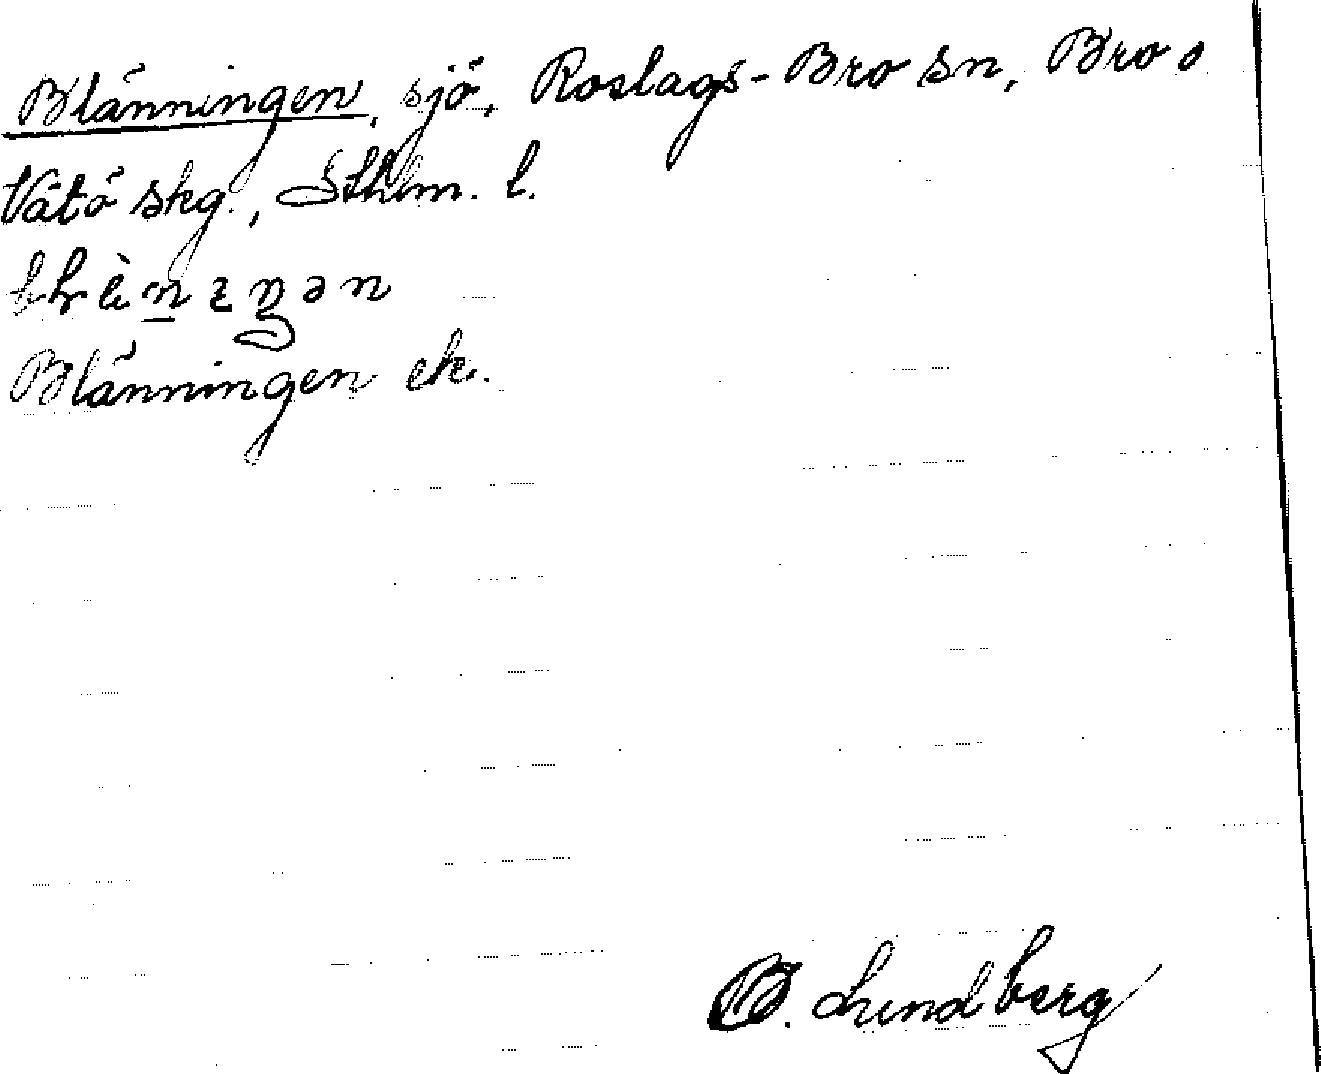 Blänningen, sjö, Roslags-Bro sn, Bro o
Vätö skg., Sthlm. l.
Blänningen ek.
B. Lundberg